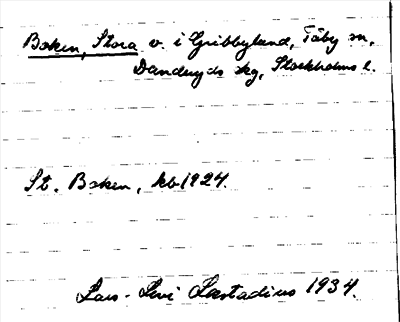 Boken, Stora v. i Gribbylund, Täby sn,
Danderyds skg, Stockholms l.
St. Boken, kb 1924.
Lars-Levi Læstadius 1934.